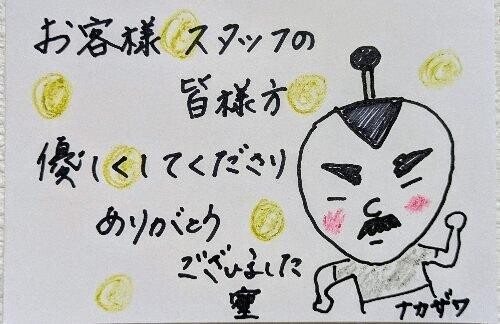 お客様スタッフの
皆様方
優しくしてくださり
ありがとう
ございました
ナカザワ